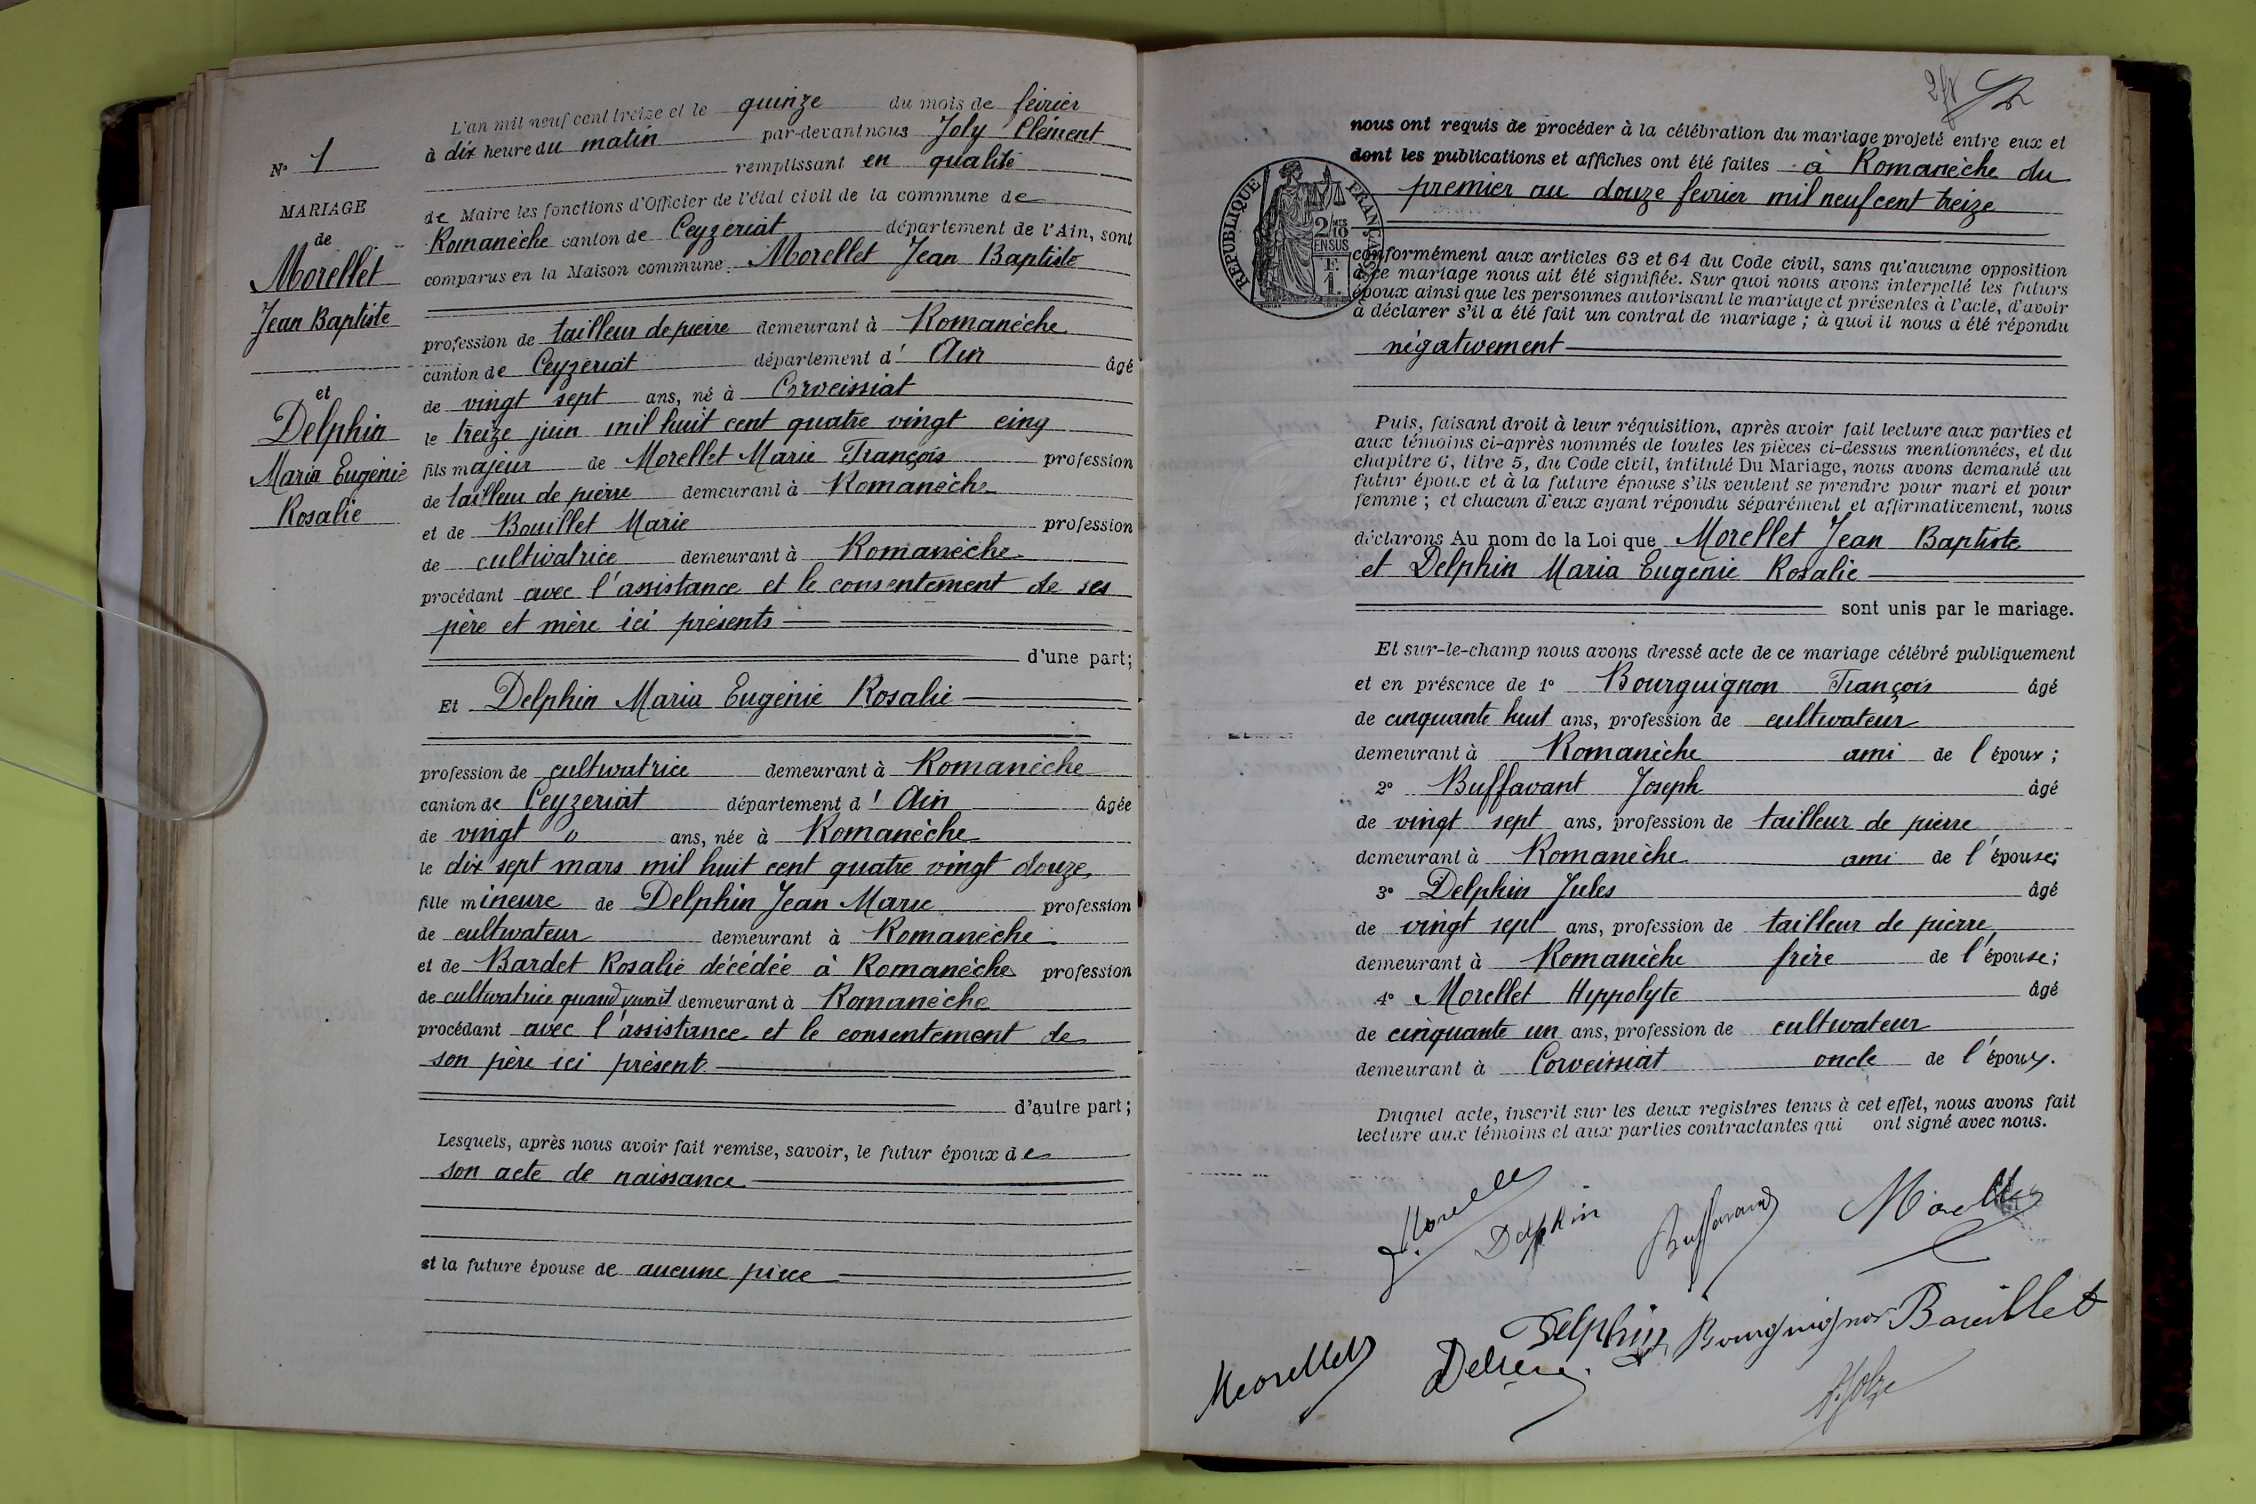 N° 1
MARIAGE
de
Morellet
Jean Baptiste
et
Delphin
Maria Eugénie
Rosalie
L'an mil neuf cent treize et le quinze du mois de février
à dix heure du matin par-devant nous Joly Clément
remplissant en qualité
de Maire les fonctions d'Officier de l'état civil de la commune de
Romanèche canton de Ceyzeriat département de l'Ain, sont
comparus en la Maison commune. Morellet Jean Baptiste
profession de tailleur de pierre demeurant à Romanèche
canton de Ceyzeriat département d' Ain âgé
de vingt sept ans, né à Corveissiat
le treize juin mil huit cent quatre vingt cinq
fils majeur de Morellet Marie François profession
de tailleur de pierre demeurant à Romanèche
et de Bouillet Marie profession
de cultivatrice demeurant à Romanèche
procédant avec l'assistance et le consentement de ses
père et mère ici présents
d'une part;
Et Delphin Maria Eugénie Rosalie
profession de cultivatrice demeurant à Romanèche
canton de Ceyzeriat département d' Ain âgée
de vingt ans, née à Romanèche
le dix sept mars mil huit cent quatre vingt douze
fille mineure de Delphin Jean Marie profession
de cultivateur demeurant à Romanèche
et de Bardet Rosalie décédée à Romanèche profession
de cultivatrice quand vivait demeurant à Romanèche
procédant avec l'assistance et le consentement de
son père ici présent
d'autre part;
Lesquels, après nous avoir fait remise, savoir, le futur époux de
son acte de naissance
et la future épouse de aucune pièce
nous ont requis de procéder à la célébration du mariage projeté entre eux et
dont les publications et affiches ont été faites à Romanèche du
premier au douze fevrier mil neuf cent treize
RÉPUBLIQUE FRANÇAISE
2/10
EN SUS
F.
1.
conformément aux articles 63 et 64 du Code civil, sans qu'aucune opposition
à ce mariage nous ait été signifiée. Sur quoi nous avons interpellé les futurs
époux ainsi que les personnes autorisant le mariage et présentes à l'acte, d'avoir
à déclarer s'il a été fait un contrat de mariage ; à quoi il nous a été répondu
négativement
Puis, faisant droit à leur réquisition, après avoir fait lecture aux parties et
aux témoins ci-après nommés de toutes les pièces ci-dessus mentionnées, et du
chapitre 6, titre 5, du Code civil, intitulé Du Mariage, nous avons demandé au
futur époux et à la future épouse s'ils veulent se prendre pour mari et pour
femme ; et chacun d'eux ayant répondu séparément et affirmativement, nous
déclarons Au nom de la Loi que Morellet Jean Baptiste
et Delphin Maria Eugénie Rosalie
sont unis par le mariage.
Et sur-le-champ nous avons dressé acte de ce mariage célébré publiquement
et en présence de 1° Bourguignon François âgé
de cinquante huit ans, profession de cultivateur
demeurant à Romanèche ami de l'époux ;
2° Buffavant Joseph âgé
de vingt sept ans, profession de tailleur de pierre
demeurant à Romanèche ami de l'épouse;
3° Delphin Jules âgé
de vingt sept ans, profession de tailleur de pierre
demeurant à Romanèche frère de l'épouse;
4° Morellet Hippolyte âgé
de cinquante un ans, profession de cultivateur
demeurant à Corveissiat oncle de l'époux.
Duquel acte, inscrit sur les deux registres tenus à cet effet, nous avons fait
lecture aux témoins et aux parties contractantes qui ont signé avec nous.
Morellet Delphin Buffavand Morellet
Morellet Delphin Bourguignon Bouillet